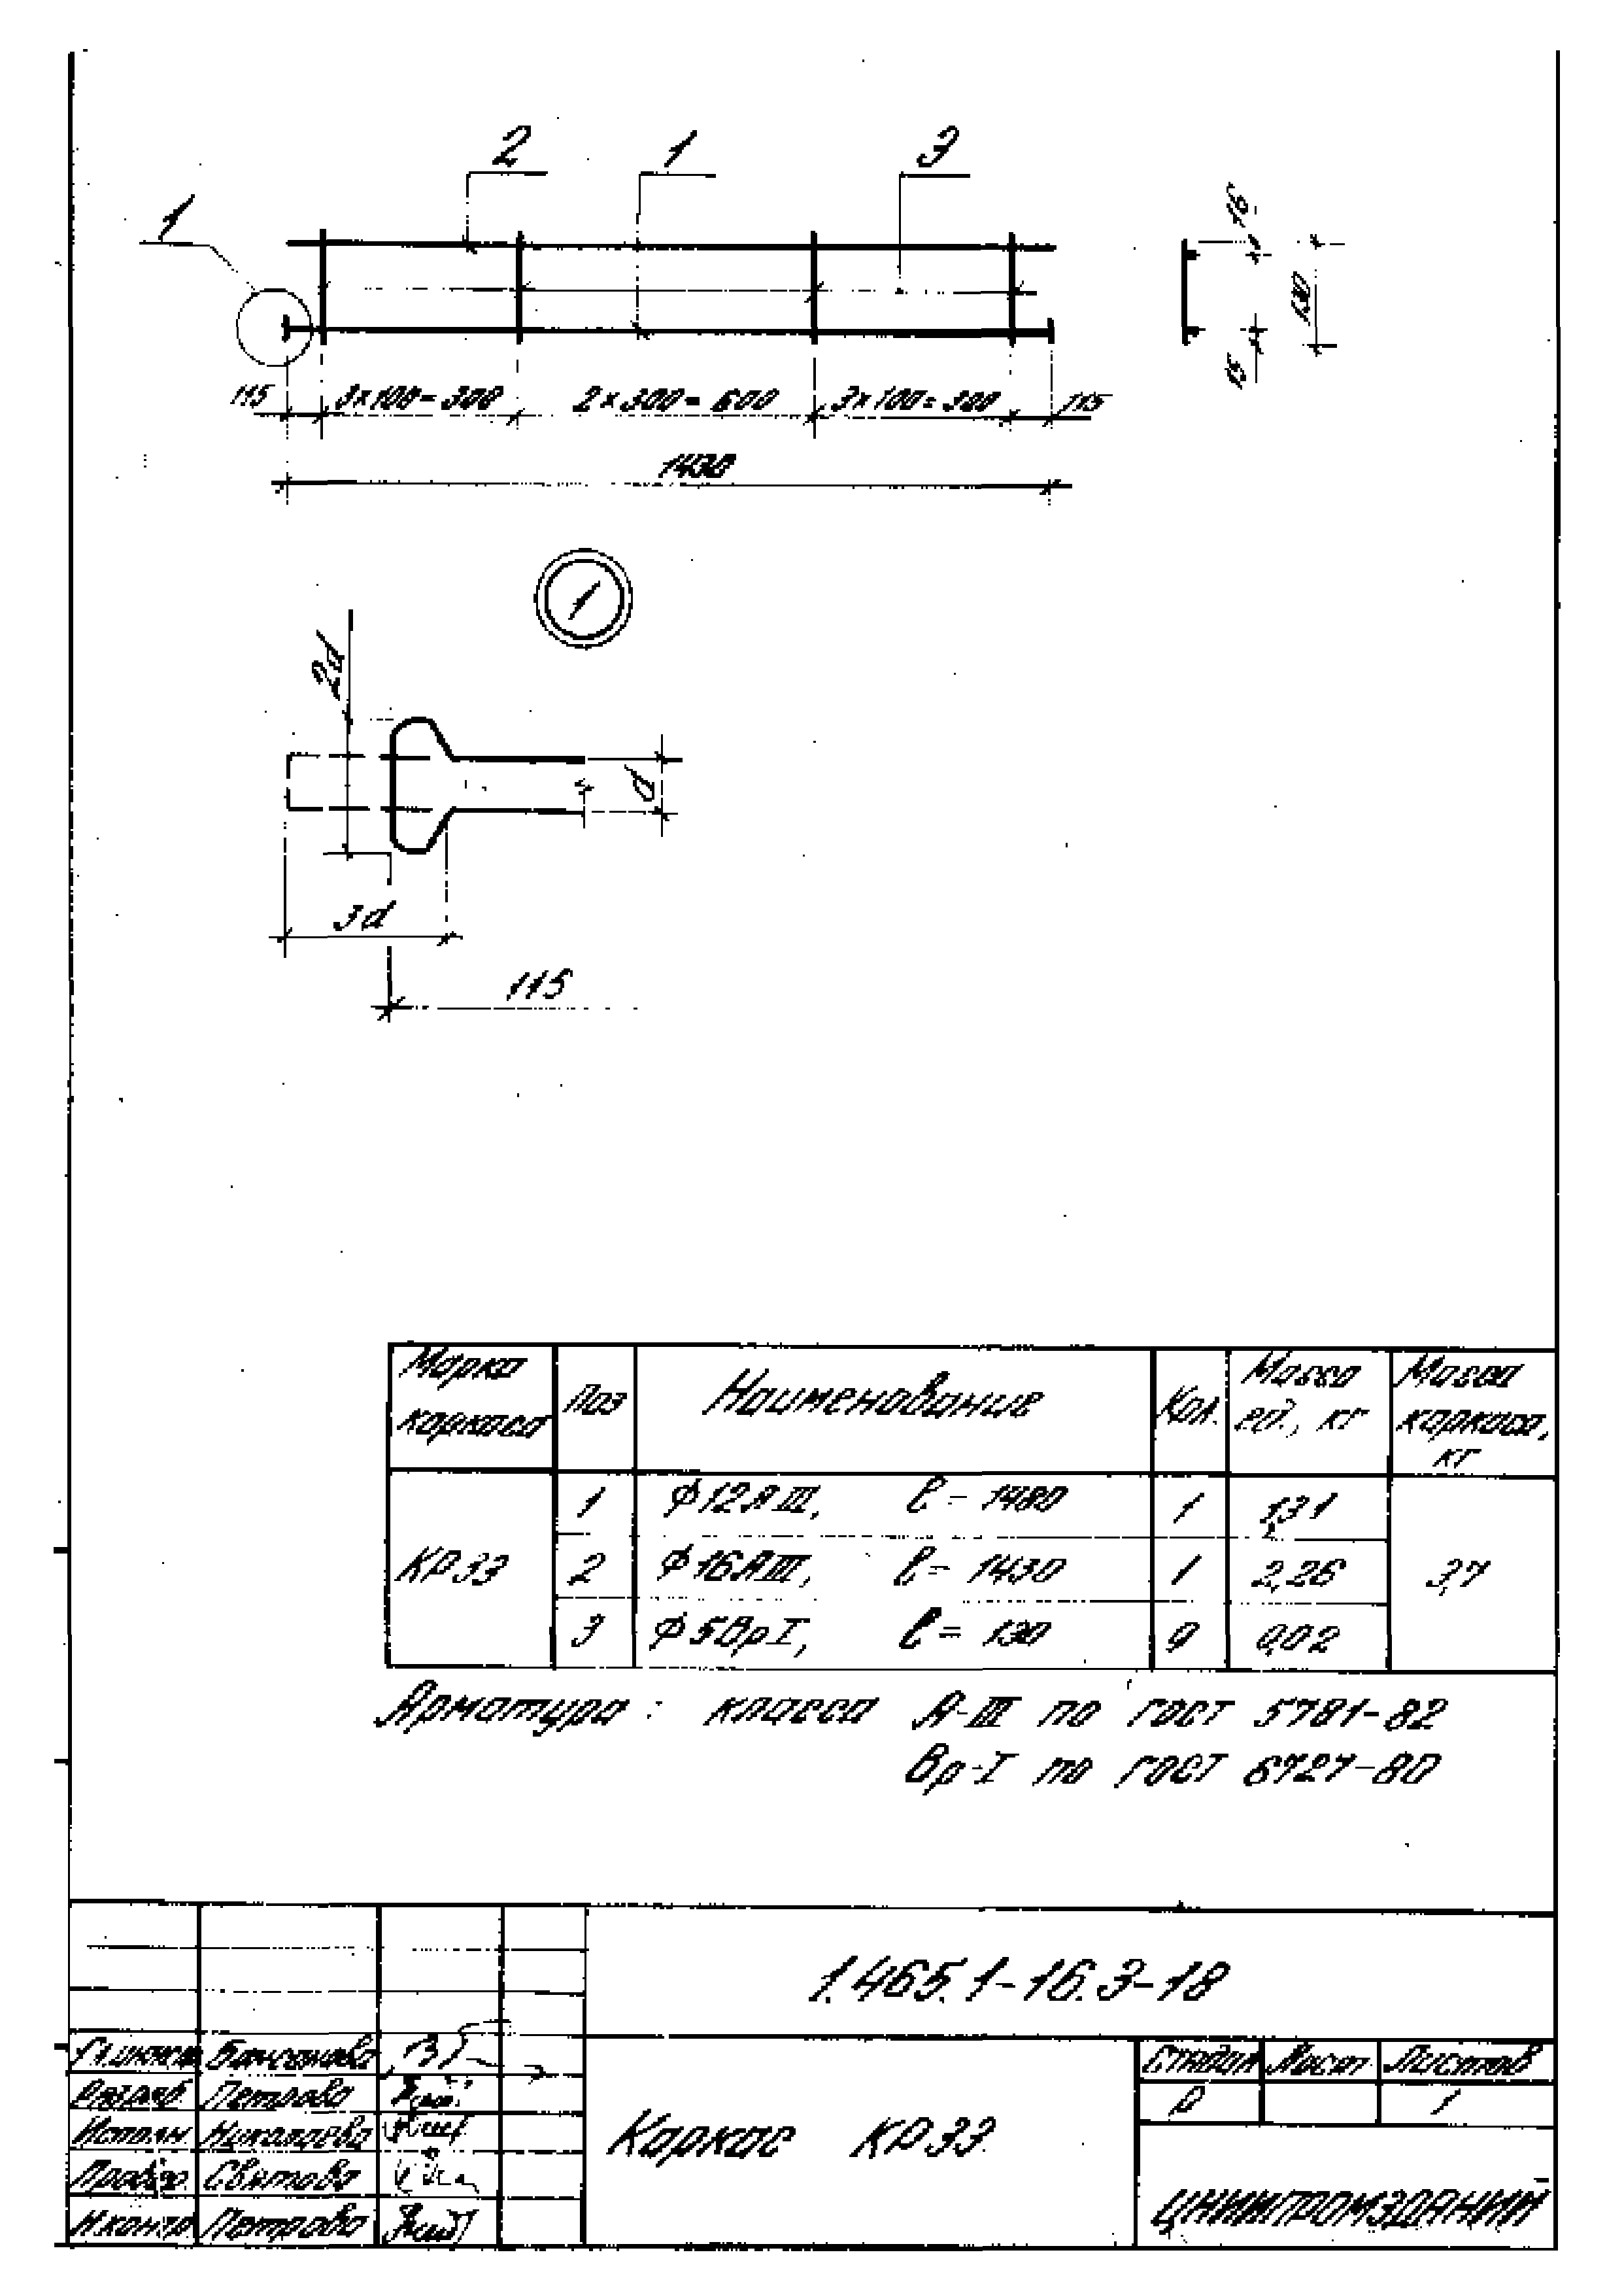 2 1 3
1
16
130
15
115 3×100=300 2×300=600 3×100=300 115
1430
1
2d
d
3d
115
Марка каркаса Поз Наименование Кол. Масса ед., кг Масса каркаса, кг
1 ϕ12АIII, ℓ= 1480 1 1,31
КР33 2 ϕ16АIII, ℓ= 1430 1 2,26 3,7
3 ϕ5ВрI, ℓ= 130 9 0,02
Арматура: класса А-III по ГОСТ 5781-82
Вр-I по ГОСТ 6727-80
1.465.1-16.3-18
Разраб Петрова
Исполн Николаева
Провер. Свитова
Н.контр Петрова
Каркас КР33
Стадия Лист Листов
Р 1
ЦНИИПРОМЗДАНИЙ